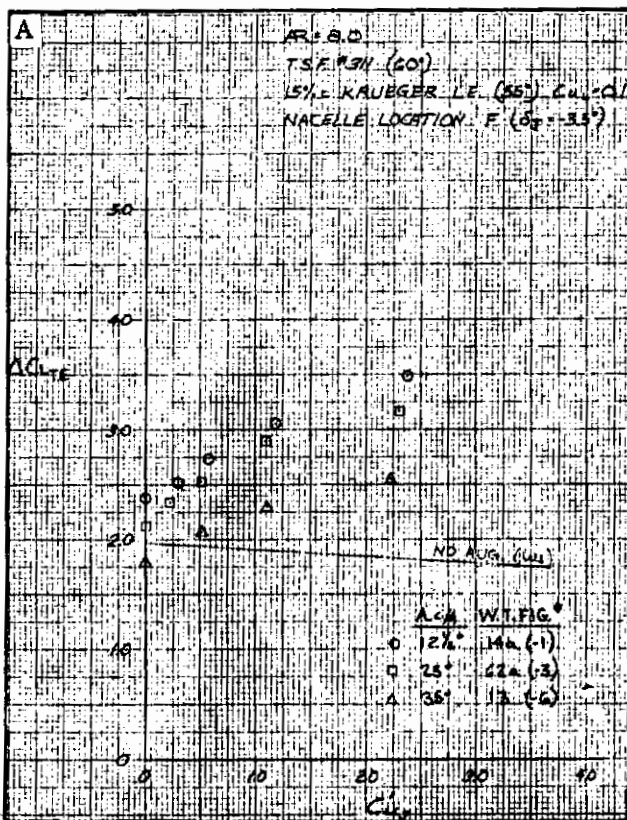 A
AR = 8.0
T.S.F. #311 (60°)
15% C KRUEGER L.E. (55°) Cμ = 0.1
NACELLE LOCATION F (δJ = -3.5°)
5.0
4.0
ΔCLTE
3.0
2.0
NO AUG.
1.0
Λc/4 W.T. FIG.#
○ 12½° 14a (-1)
□ 25° 62a (-3)
△ 35° 13 (-6)
0
0 1.0 2.0 3.0 4.0
CμJ